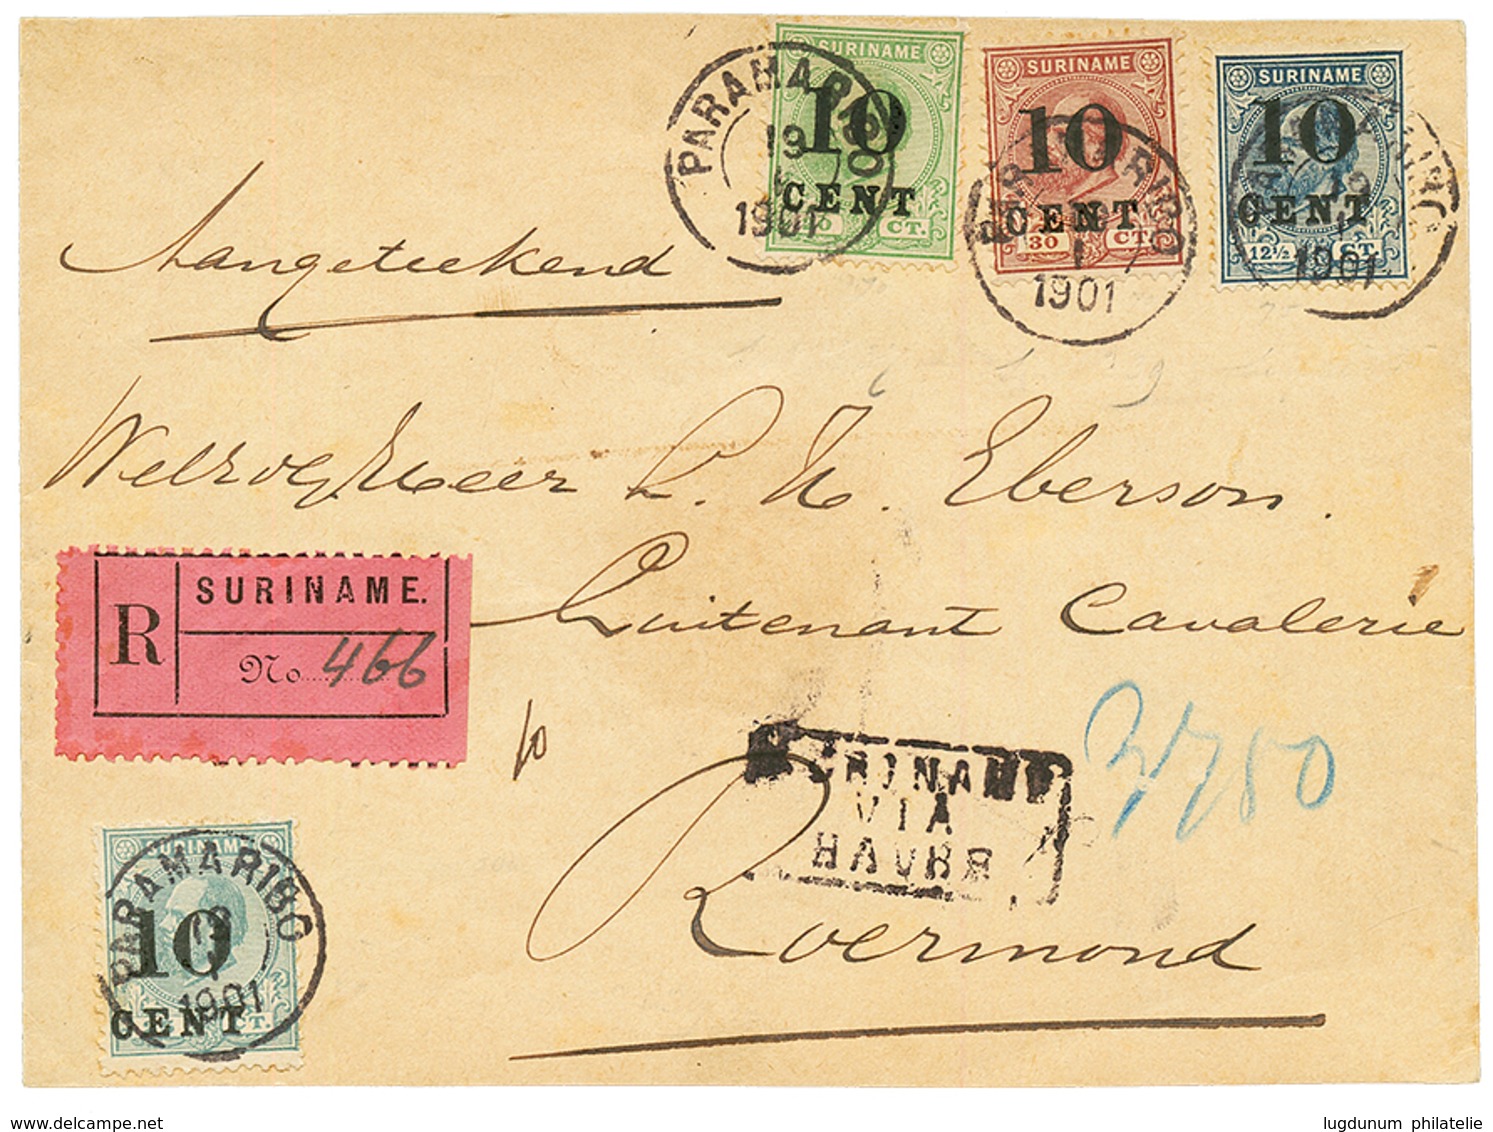 SURINAME
10
CENT
CT.
PARAMARIBO
19
1901
SURINAME
10
CENT
30 CT.
1901
SURINAME
10
CENT
12½ CT.
19
1901
Aangeteekend
Welroogheer L. H. Eberson.
Luitenant Cavalerie
R
SURINAME.
No 466
10
SURINAME
VIA
HAVRE
Roermond
SURINAME
10
CENT
CT.
PARAMARIBO
1901
www.delcampe.net
lugdunum philatelie